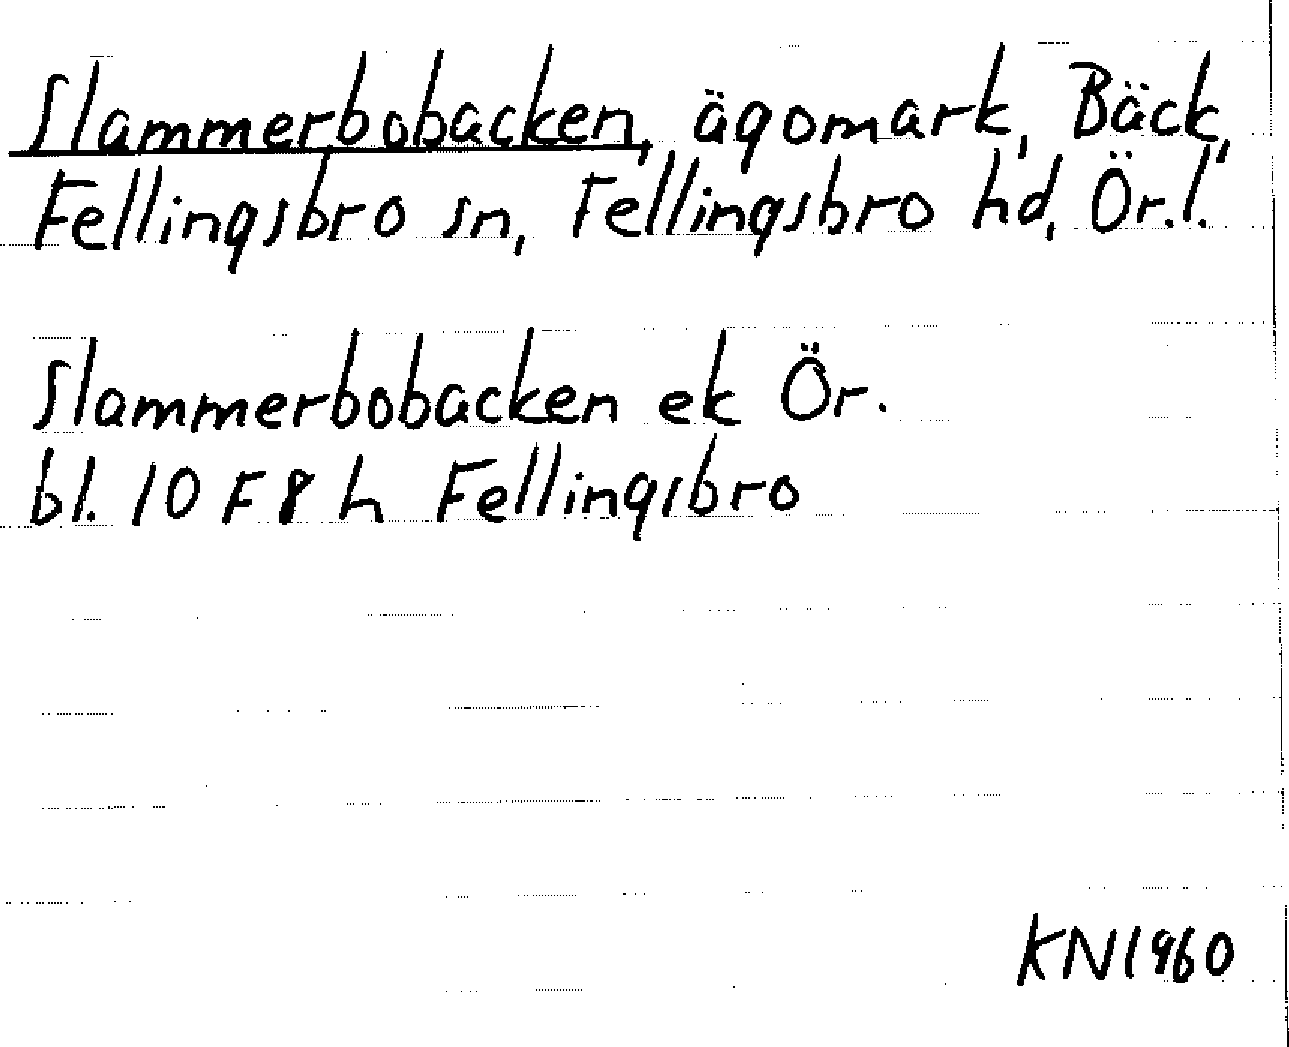 Slammerbobacken, ägomark, Bäck,
Fellingsbro sn, Fellingsbro hd, Ör.l.
Slammerbobacken ek Ör.
bl. 10 F 8 h Fellingsbro
KN1960